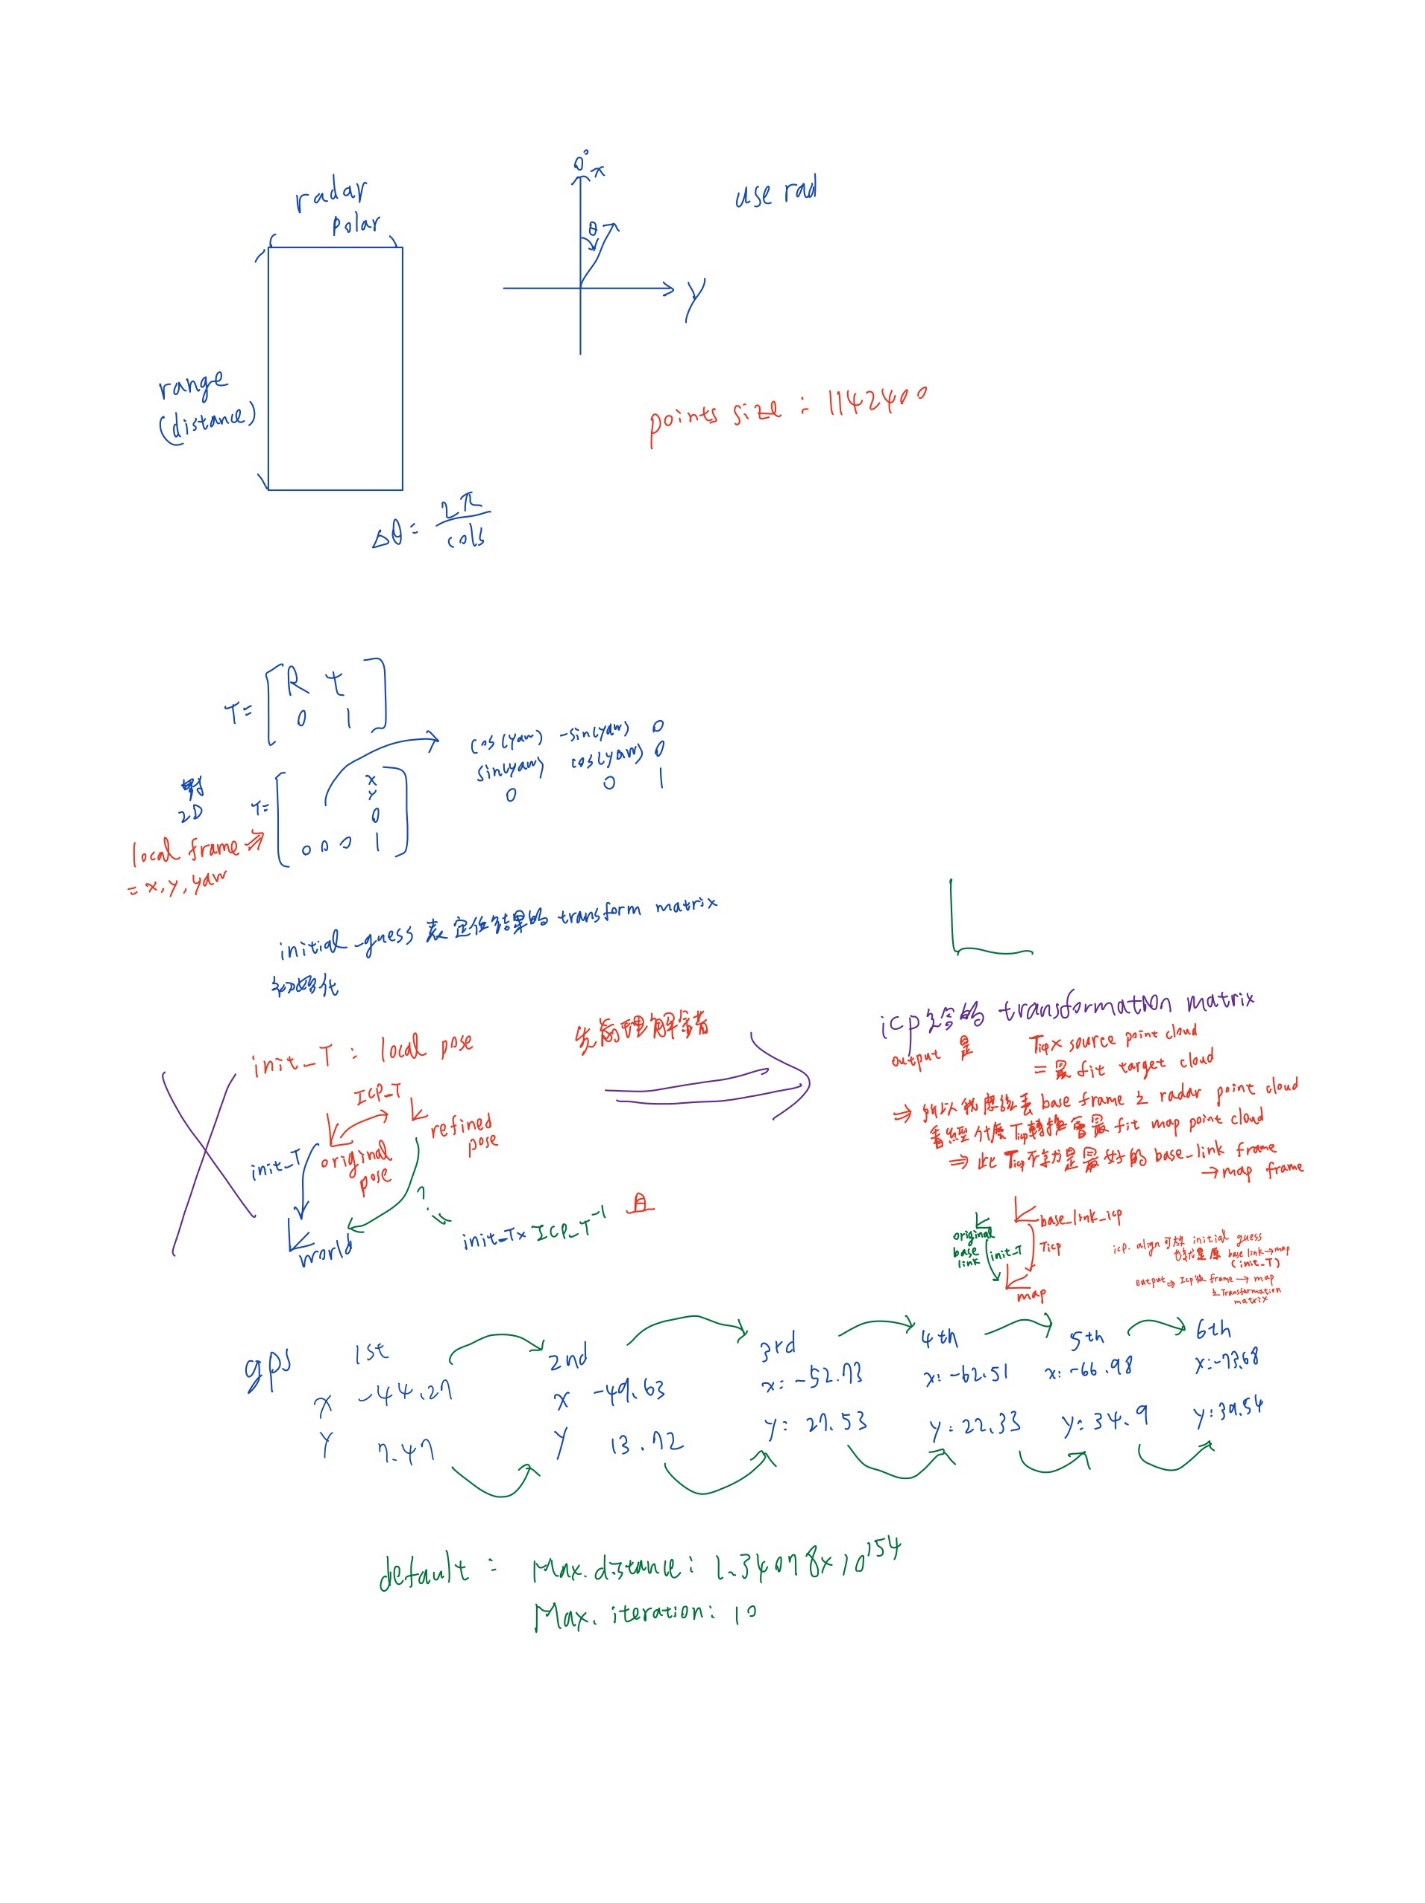 radar
polar
0°
x
θ
Y
use rad
range
(distance)
points size : 1142400
Δθ = 2π / cols
T = [ R t
0 1 ]
cos(yaw) -sin(yaw) 0
sin(yaw) cos(yaw) 0
0 0 1
對
2D
T = [ x
y
0
0 0 0 1 ]
local frame ⇒
= x, y, yaw
initial_guess 表定位結果的 transform matrix
初始化
init_T : local pose
ICP_T
original
pose
refined
pose
init_T
world
?
init_T × ICP_T⁻¹ 且
先前理解錯
icp 給的 transformation matrix
output 是 Ticp × source point cloud
= 最 fit target cloud
⇒ 所以我應該丟 base frame 之 radar point cloud
看經 Ticp 轉換會最 fit map point cloud
⇒ 此 Ticp 就是最好的 base_link frame
→ map frame
original
base
link
init_T
base_link_icp
Ticp
map
icp.align 可放 initial guess
也就是原 base link → map
(init_T)
output ⇒ Icp後 frame → map
之 Transformation
matrix
gps
1st
x -44.27
Y 7.47
2nd
x -49.63
Y 13.72
3rd
x: -52.73
y: 27.53
4th
x: -62.51
y: 22.33
5th
x: -66.98
y: 34.9
6th
x: -73.68
y: 39.54
default : Max. distance : 1.34078×10¹⁵⁴
Max. iteration : 10